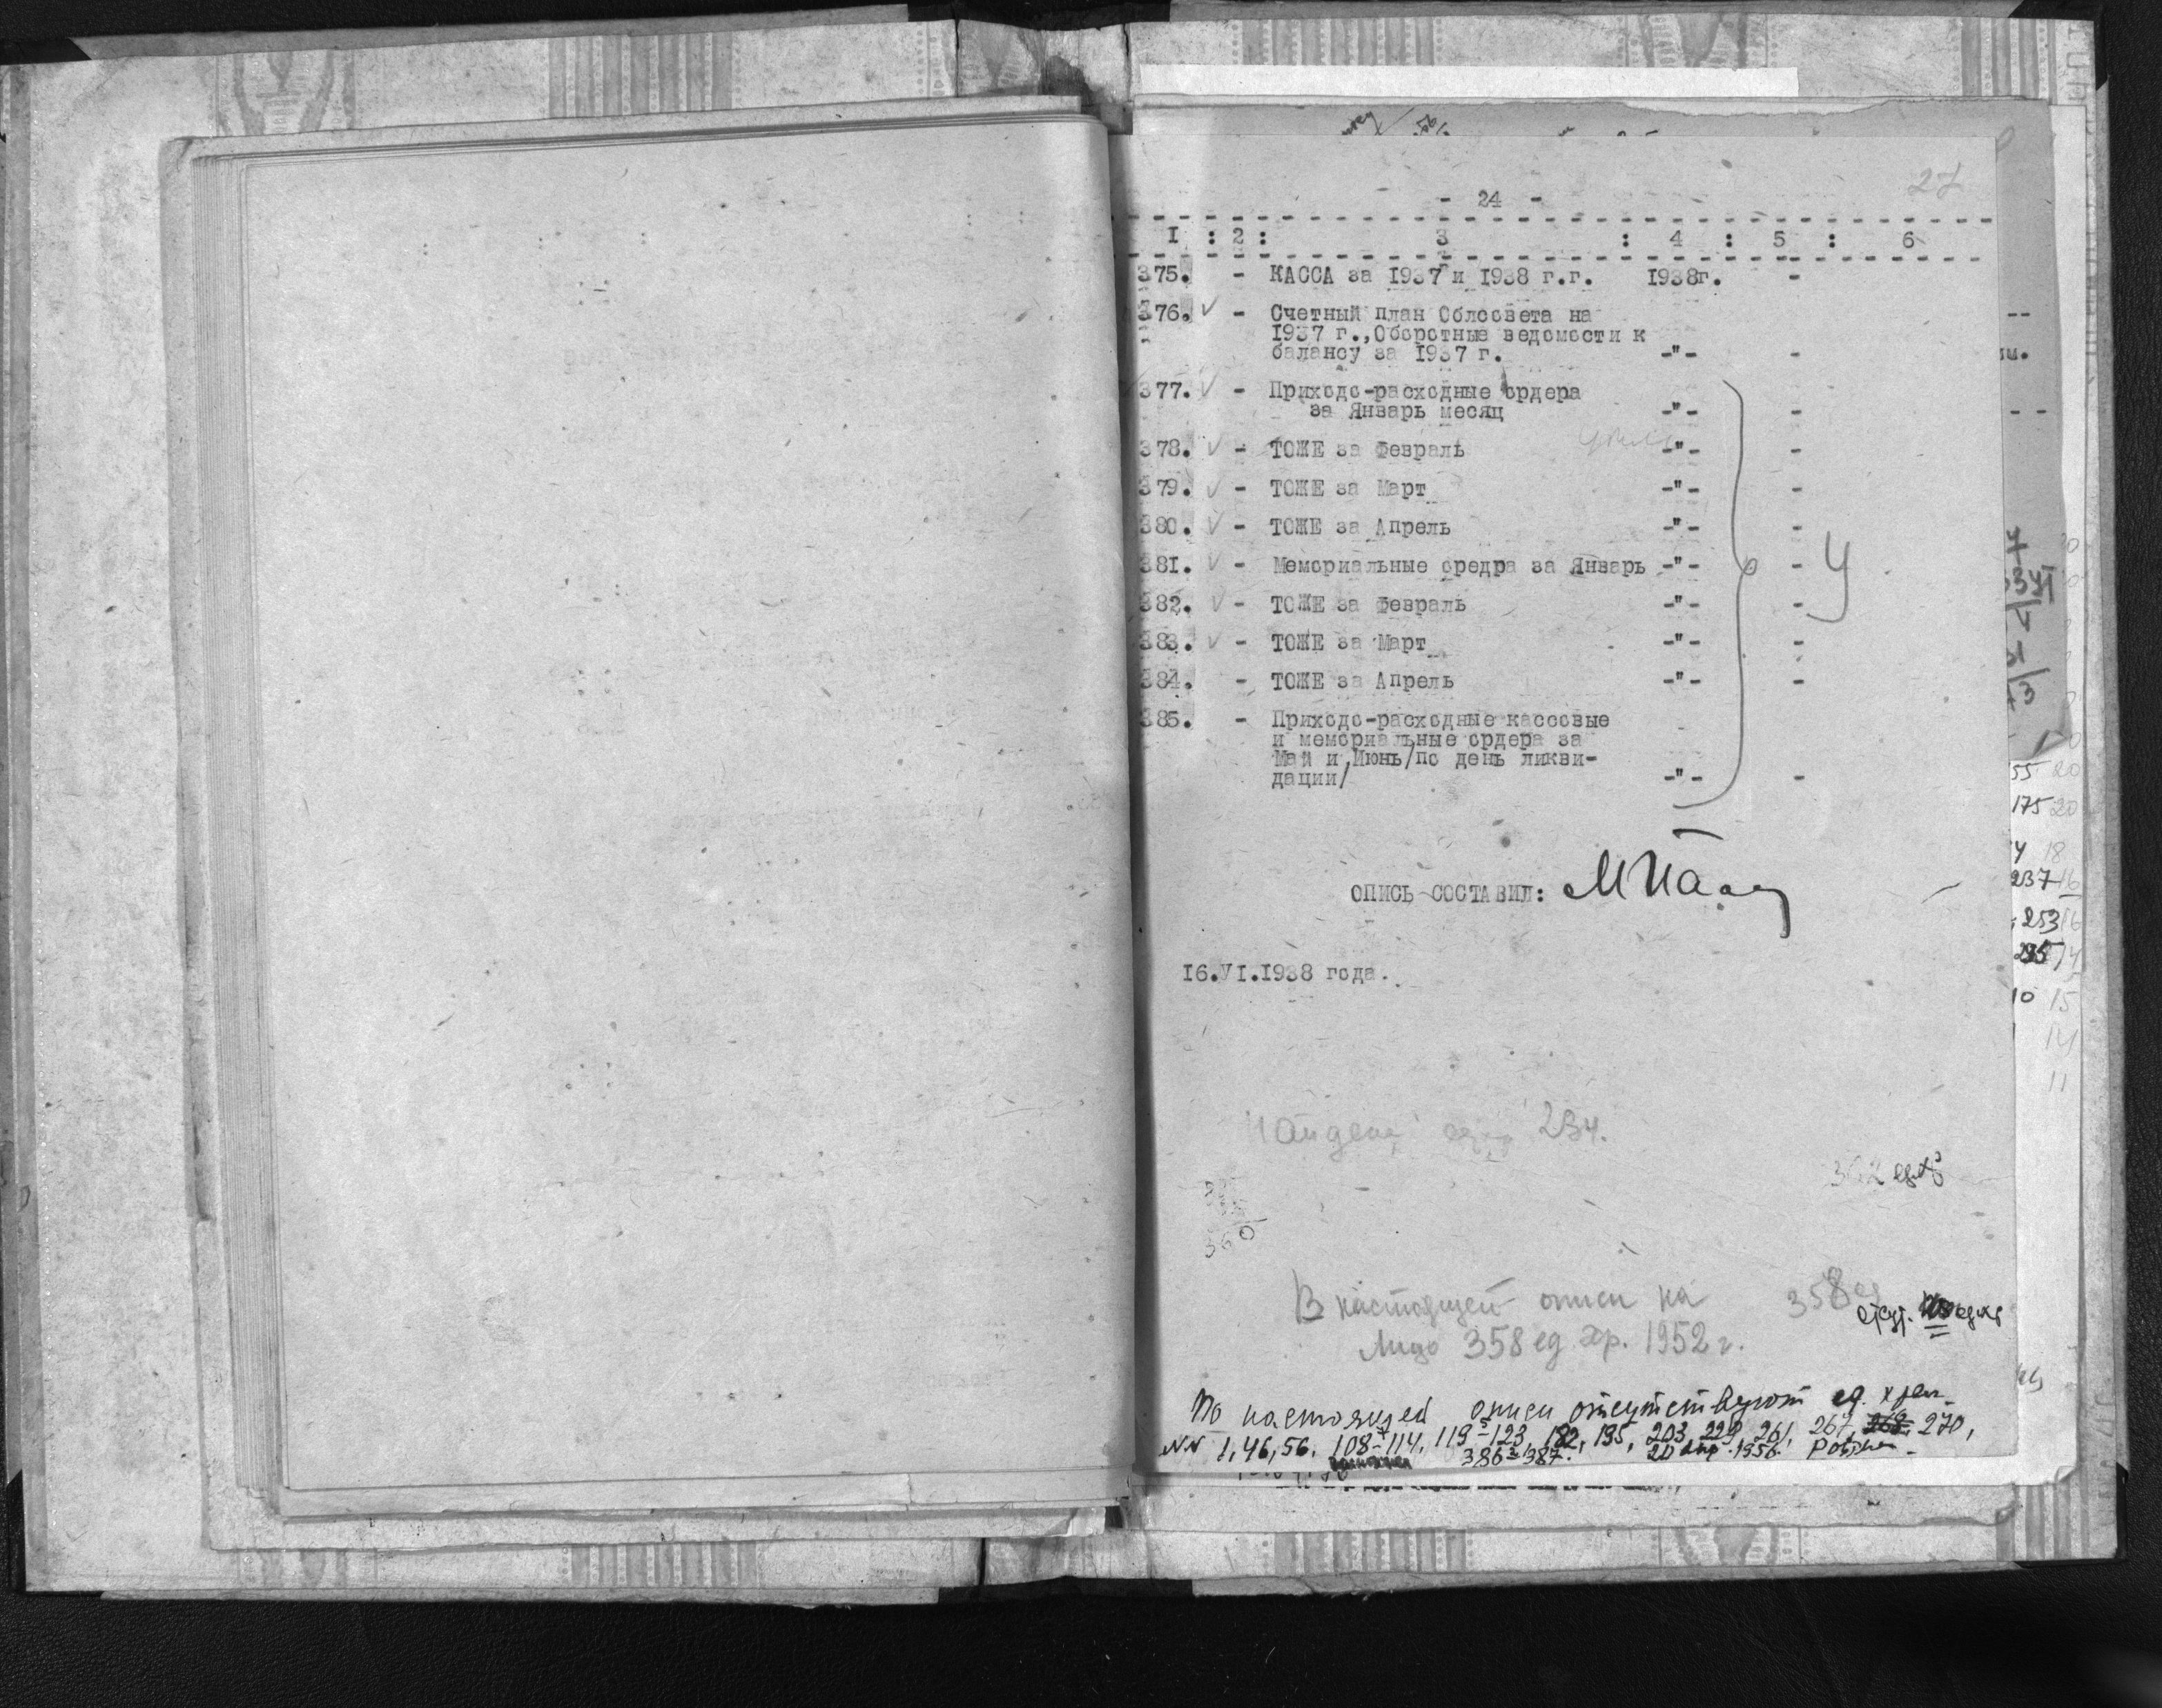 27
- 24 -
I : 2 : 3 : 4 : 5 : 6
375. - КАССА за 1937 и 1938 г.г. 1938г. -
376. √ - Счетный план Облсовета на
1937 г.,Оборотные ведомости к
балансу за 1937 г. -"- -
377. √ - Приходо-расходные ордера
за Январь месяц -"- -
378. √ - ТОЖЕ за Февраль -"- -
379. √ - ТОЖЕ за Март -"- -
380. √ - ТОЖЕ за Апрель -"- -
381. √ - Мемориальные оредра за Январь -"- - У
382. √ - ТОЖЕ за Февраль -"- -
383. √ - ТОЖЕ за Март -"- -
384. - ТОЖЕ за Апрель -"- -
385. - Приходо-расходные кассовые
и мемориальные ордера за
Май и Июнь/по день ликви-
дации/ -"- -
ОПИСЬ СОСТАВИЛ:
16.VI.1938 года.
234.
ед.хр
360
В настоящей описи на 358 ед
лицо 358 ед. хр. 1952 г.
По настоящей описи отсутствуют ед. хран.
NN 1, 46, 56, 108-114, 119-123, 182, 195, 203, 229, 261, 267, 268, 270,
386-387. 20 апр. 1956.